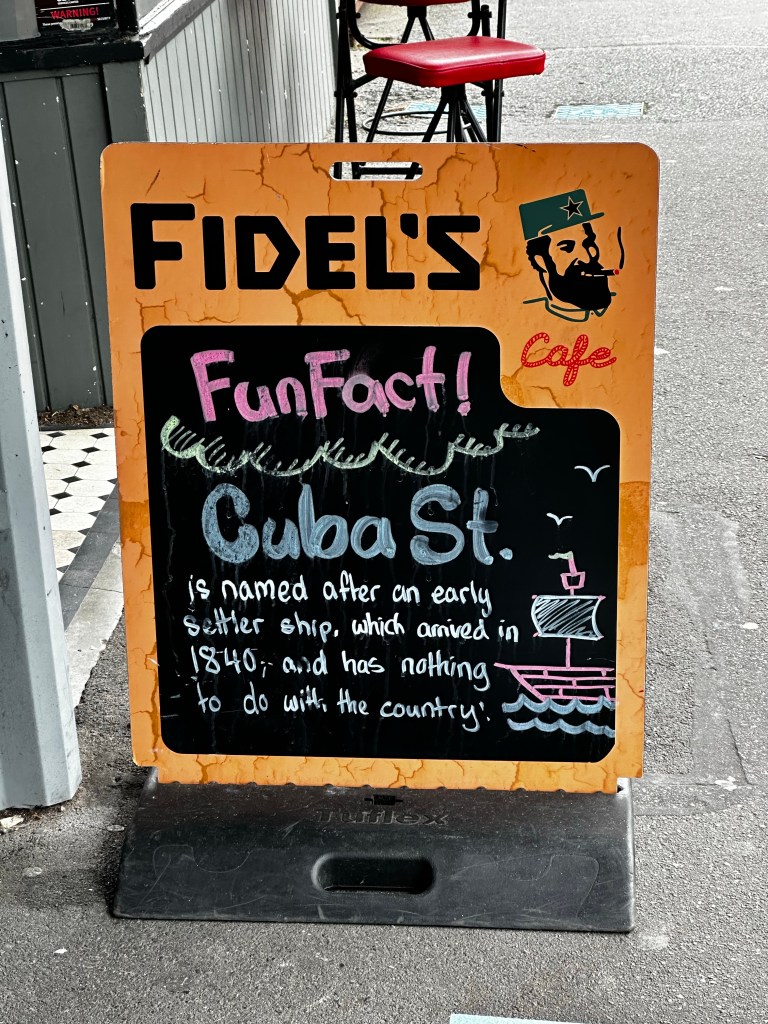 WARNING!
FIDEL'S
Cafe
Fun Fact!
Cuba St.
is named after an early
settler ship, which arrived in
1840, and has nothing
to do with the country!
Tuflex